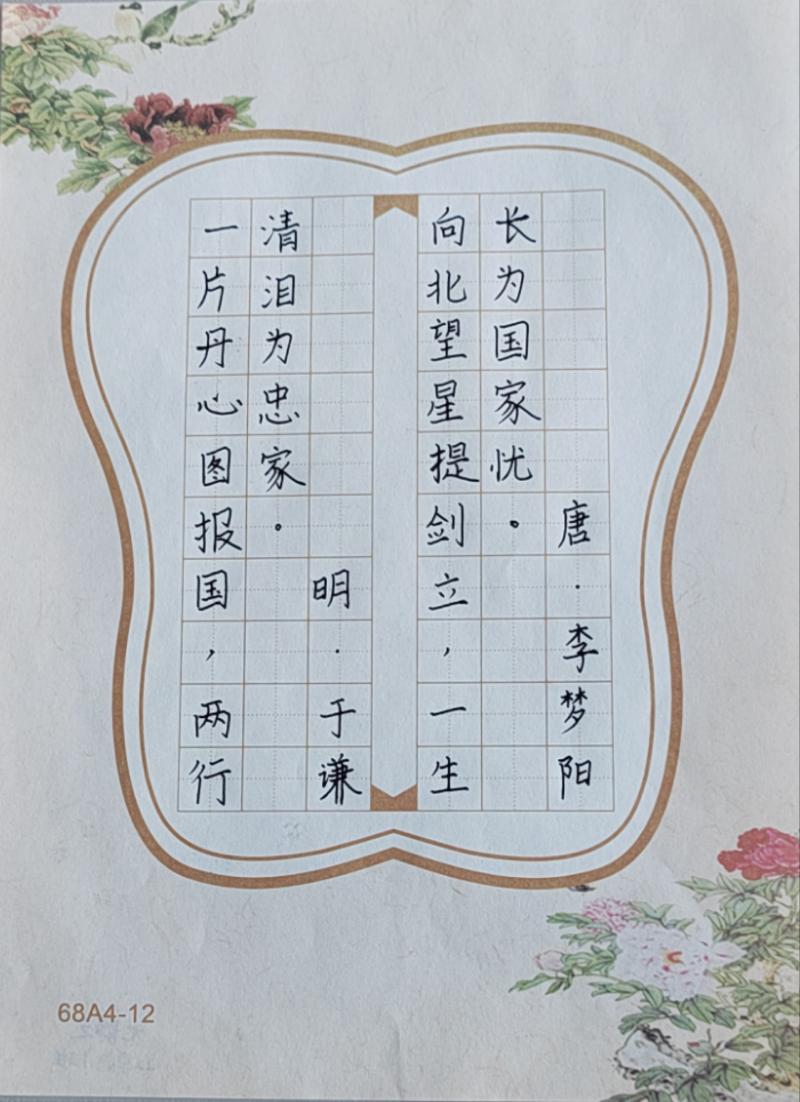 一片丹心图报国，两行
清泪为忠家。
明·于谦
向北望星提剑立，一生
长为国家忧。
唐·李梦阳
68A4-12